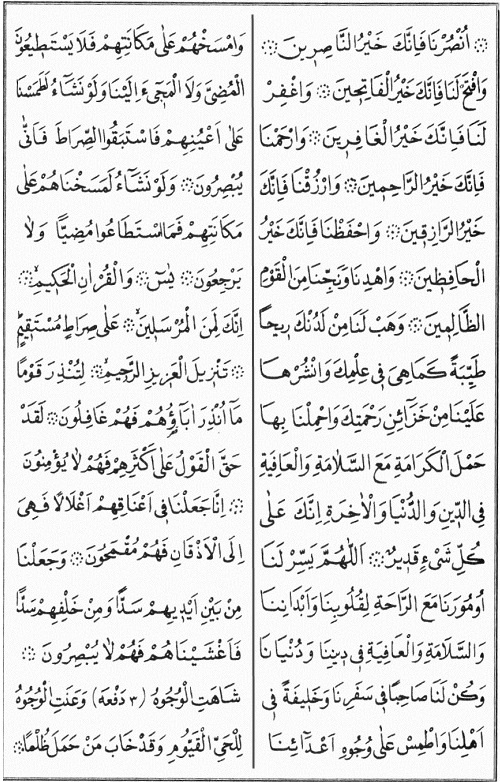 ۞ اُنْصُرْنَا فَاِنَّكَ خَيْرُ النَّاصِرِينَ ۞
وَافْتَحْ لَنَا فَاِنَّكَ خَيْرُ الْفَاتِحِينَ ۞ وَاغْفِرْ
لَنَا فَاِنَّكَ خَيْرُ الْغَافِرِينَ ۞ وَارْحَمْنَا
فَاِنَّكَ خَيْرُ الرَّاحِمِينَ ۞ وَارْزُقْنَا فَاِنَّكَ
خَيْرُ الرَّازِقِينَ ۞ وَاحْفَظْنَا فَاِنَّكَ خَيْرُ
الْحَافِظِينَ ۞ وَاهْدِنَا وَنَجِّنَا مِنَ الْقَوْمِ
الظَّالِمِينَ ۞ وَهَبْ لَنَا مِنْ لَدُنْكَ رِيحًا
طَيِّبَةً كَمَا هِيَ فِي عِلْمِكَ وَانْشُرْهَا
عَلَيْنَا مِنْ خَزَآئِنِ رَحْمَتِكَ وَاحْمِلْنَا بِهَا
حَمْلَ الْكَرَامَةِ مَعَ السَّلَامَةِ وَالْعَافِيَةِ
فِي الدِّينِ وَالدُّنْيَا وَالْاٰخِرَةِ اِنَّكَ عَلٰى
كُلِّ شَيْءٍ قَدِيرٌ ۞ اَللّٰهُمَّ يَسِّرْ لَنَا
اُمُورَنَا مَعَ الرَّاحَةِ لِقُلُوبِنَا وَاَبْدَانِنَا
وَالسَّلَامَةِ وَالْعَافِيَةِ فِي دِينِنَا وَدُنْيَانَا
وَكُنْ لَنَا صَاحِبًا فِي سَفَرِنَا وَخَلِيفَةً فِي
اَهْلِنَا وَاطْمِسْ عَلٰى وُجُوهِ اَعْدَآئِنَا
وَامْسَخْهُمْ عَلٰى مَكَانَتِهِمْ فَلَا يَسْتَطِيعُونَ
الْمُضِيَّ وَلَا الْمَجِيءَ اِلَيْنَا وَلَوْ نَشَآءُ لَطَمَسْنَا
عَلٰى اَعْيُنِهِمْ فَاسْتَبَقُوا الصِّرَاطَ فَاَنّٰى
يُبْصِرُونَ ۞ وَلَوْ نَشَآءُ لَمَسَخْنَاهُمْ عَلٰى
مَكَانَتِهِمْ فَمَا اسْتَطَاعُوا مُضِيًّا وَلَا
يَرْجِعُونَ ۞ يٰسٓ ۞ وَالْقُرْاٰنِ الْحَكِيمِ ۞
اِنَّكَ لَمِنَ الْمُرْسَلِينَ ۞ عَلٰى صِرَاطٍ مُسْتَقِيمٍ
۞ تَنْزِيلَ الْعَزِيزِ الرَّحِيمِ ۞ لِتُنْذِرَ قَوْمًا
مَآ اُنْذِرَ اٰبَآؤُهُمْ فَهُمْ غَافِلُونَ ۞ لَقَدْ
حَقَّ الْقَوْلُ عَلٰى اَكْثَرِهِمْ فَهُمْ لَا يُؤْمِنُونَ
۞ اِنَّا جَعَلْنَا فِي اَعْنَاقِهِمْ اَغْلَالًا فَهِيَ
اِلَى الْاَذْقَانِ فَهُمْ مُقْمَحُونَ ۞ وَجَعَلْنَا
مِنْ بَيْنِ اَيْدِيهِمْ سَدًّا وَمِنْ خَلْفِهِمْ سَدًّا
فَاَغْشَيْنَاهُمْ فَهُمْ لَا يُبْصِرُونَ ۞
شَاهَتِ الْوُجُوهُ (٣ دَفْعَه) وَعَنَتِ الْوُجُوهُ
لِلْحَيِّ الْقَيُّومِ وَقَدْ خَابَ مَنْ حَمَلَ ظُلْمًا ۞